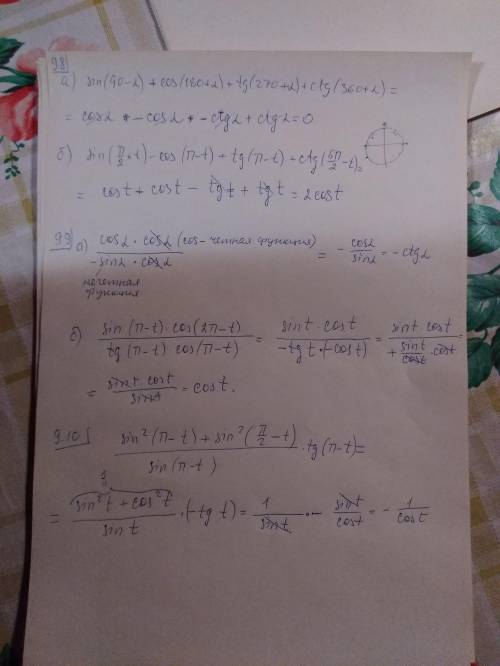 9.8
а) sin(90-α) + cos(180+α) + tg(270+α) + ctg(360+α) =
= cosα + -cosα + -ctgα + ctgα = 0
б) sin(π/2 + t) - cos(π-t) + tg(π-t) + ctg(5π/2 - t) =
= cost + cost - tgt + tgt = 2cost
9.9 а) cosα · cosα (cos - четная функция) / -sinα · cosα = - cosα/sinα = -ctgα
нечетная
функция
б) sin(π-t) · cos(2π-t) / tg(π-t) cos(π-t) = sint · cost / -tgt · (-cost) = sint · cost / + sint/cost · cost =
= sint · cost / sint = cost.
9.10 sin²(π-t) + sin²(π/2 - t) / sin(π-t) · tg(π-t) =
1
= sin²t + cos²t / sint · (-tgt) = 1/sint · - sint/cost = - 1/cost